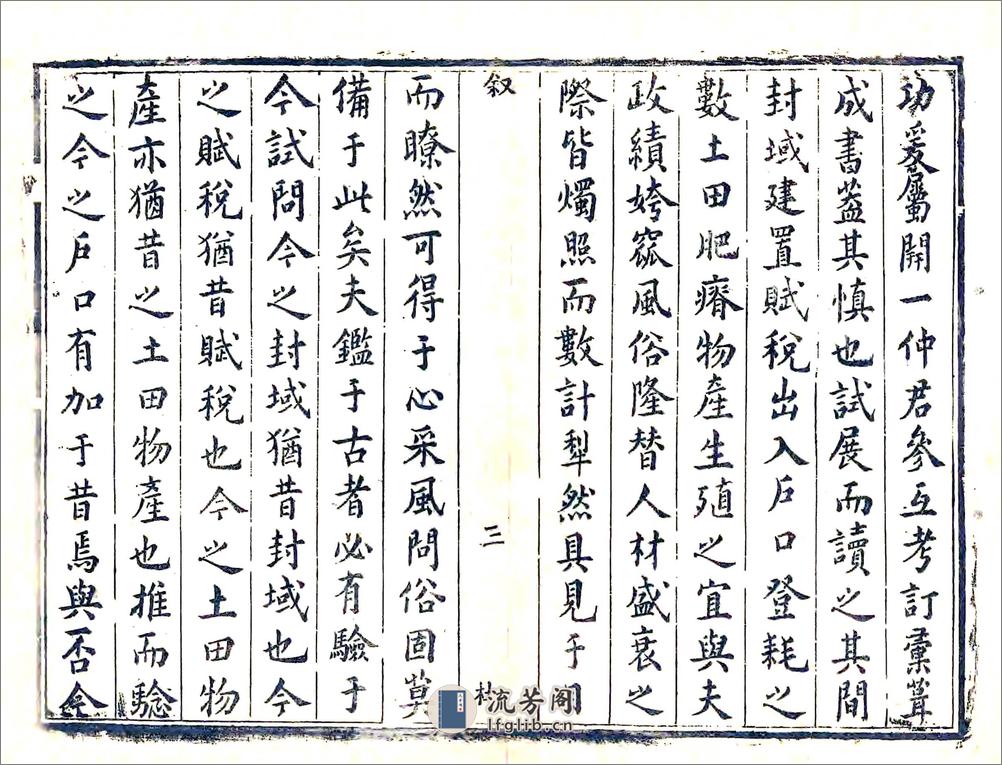 功爰屬開一仲君參互考訂彙葺
成書葢其慎也試展而讀之其間
封域建置賦稅出入戶口登耗之
數土田肥瘠物產生殖之宜與夫
政績姱窳風俗隆替人材盛衰之
際皆燭照而數計犁然具見于目
叙
三
杜
而瞭然可得于心采風問俗固莫
備于此矣夫鑑于古者必有驗于
今試問今之封域猶昔封域也今
之賦稅猶昔賦稅也今之土田物
產亦猶昔之土田物產也推而騐
之今之戶口有加于昔焉與否今
流芳阁
lfglib.cn